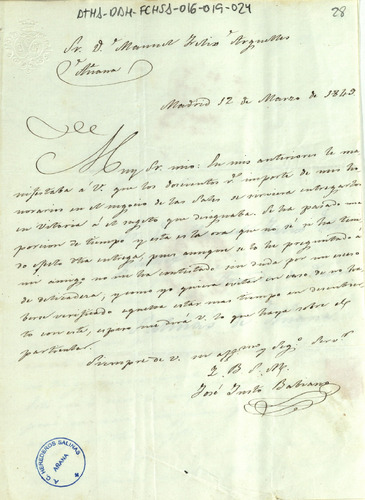 ATHA-DAH-FCHSA-016-019-024
28
Sr. D.n Manuel Felix Arguelles
Añana
Madrid 12 de Marzo de 1849
Muy Sr. mio: En mis anteriores le ma
nifestaba a V. que los doscientos r.s importe de mis ho
norarios en el negocio de las Salas se sirviera entregarlos
en Vitoria á el sugeto que designaba. Se ha pasado una
porcion de tiempo y esta es la ora que no sé si ha teni
do efecto dha entrega, pues aunque se lo he preguntado á
un amigo no me ha contestado sin duda por un esceso
de delicadeza, y como yo quiero evitar en caso de no ha
berse verificado aquella estar mas tiempo en descubier
to con este, espero me dirá V. lo que haya sobre el
particular.
Siempre de V. su affmo. y Seg.o Serv.r
Q B S. M.
José Justo Babiano
T. C. HEREDEROS SALINAS
AÑANA